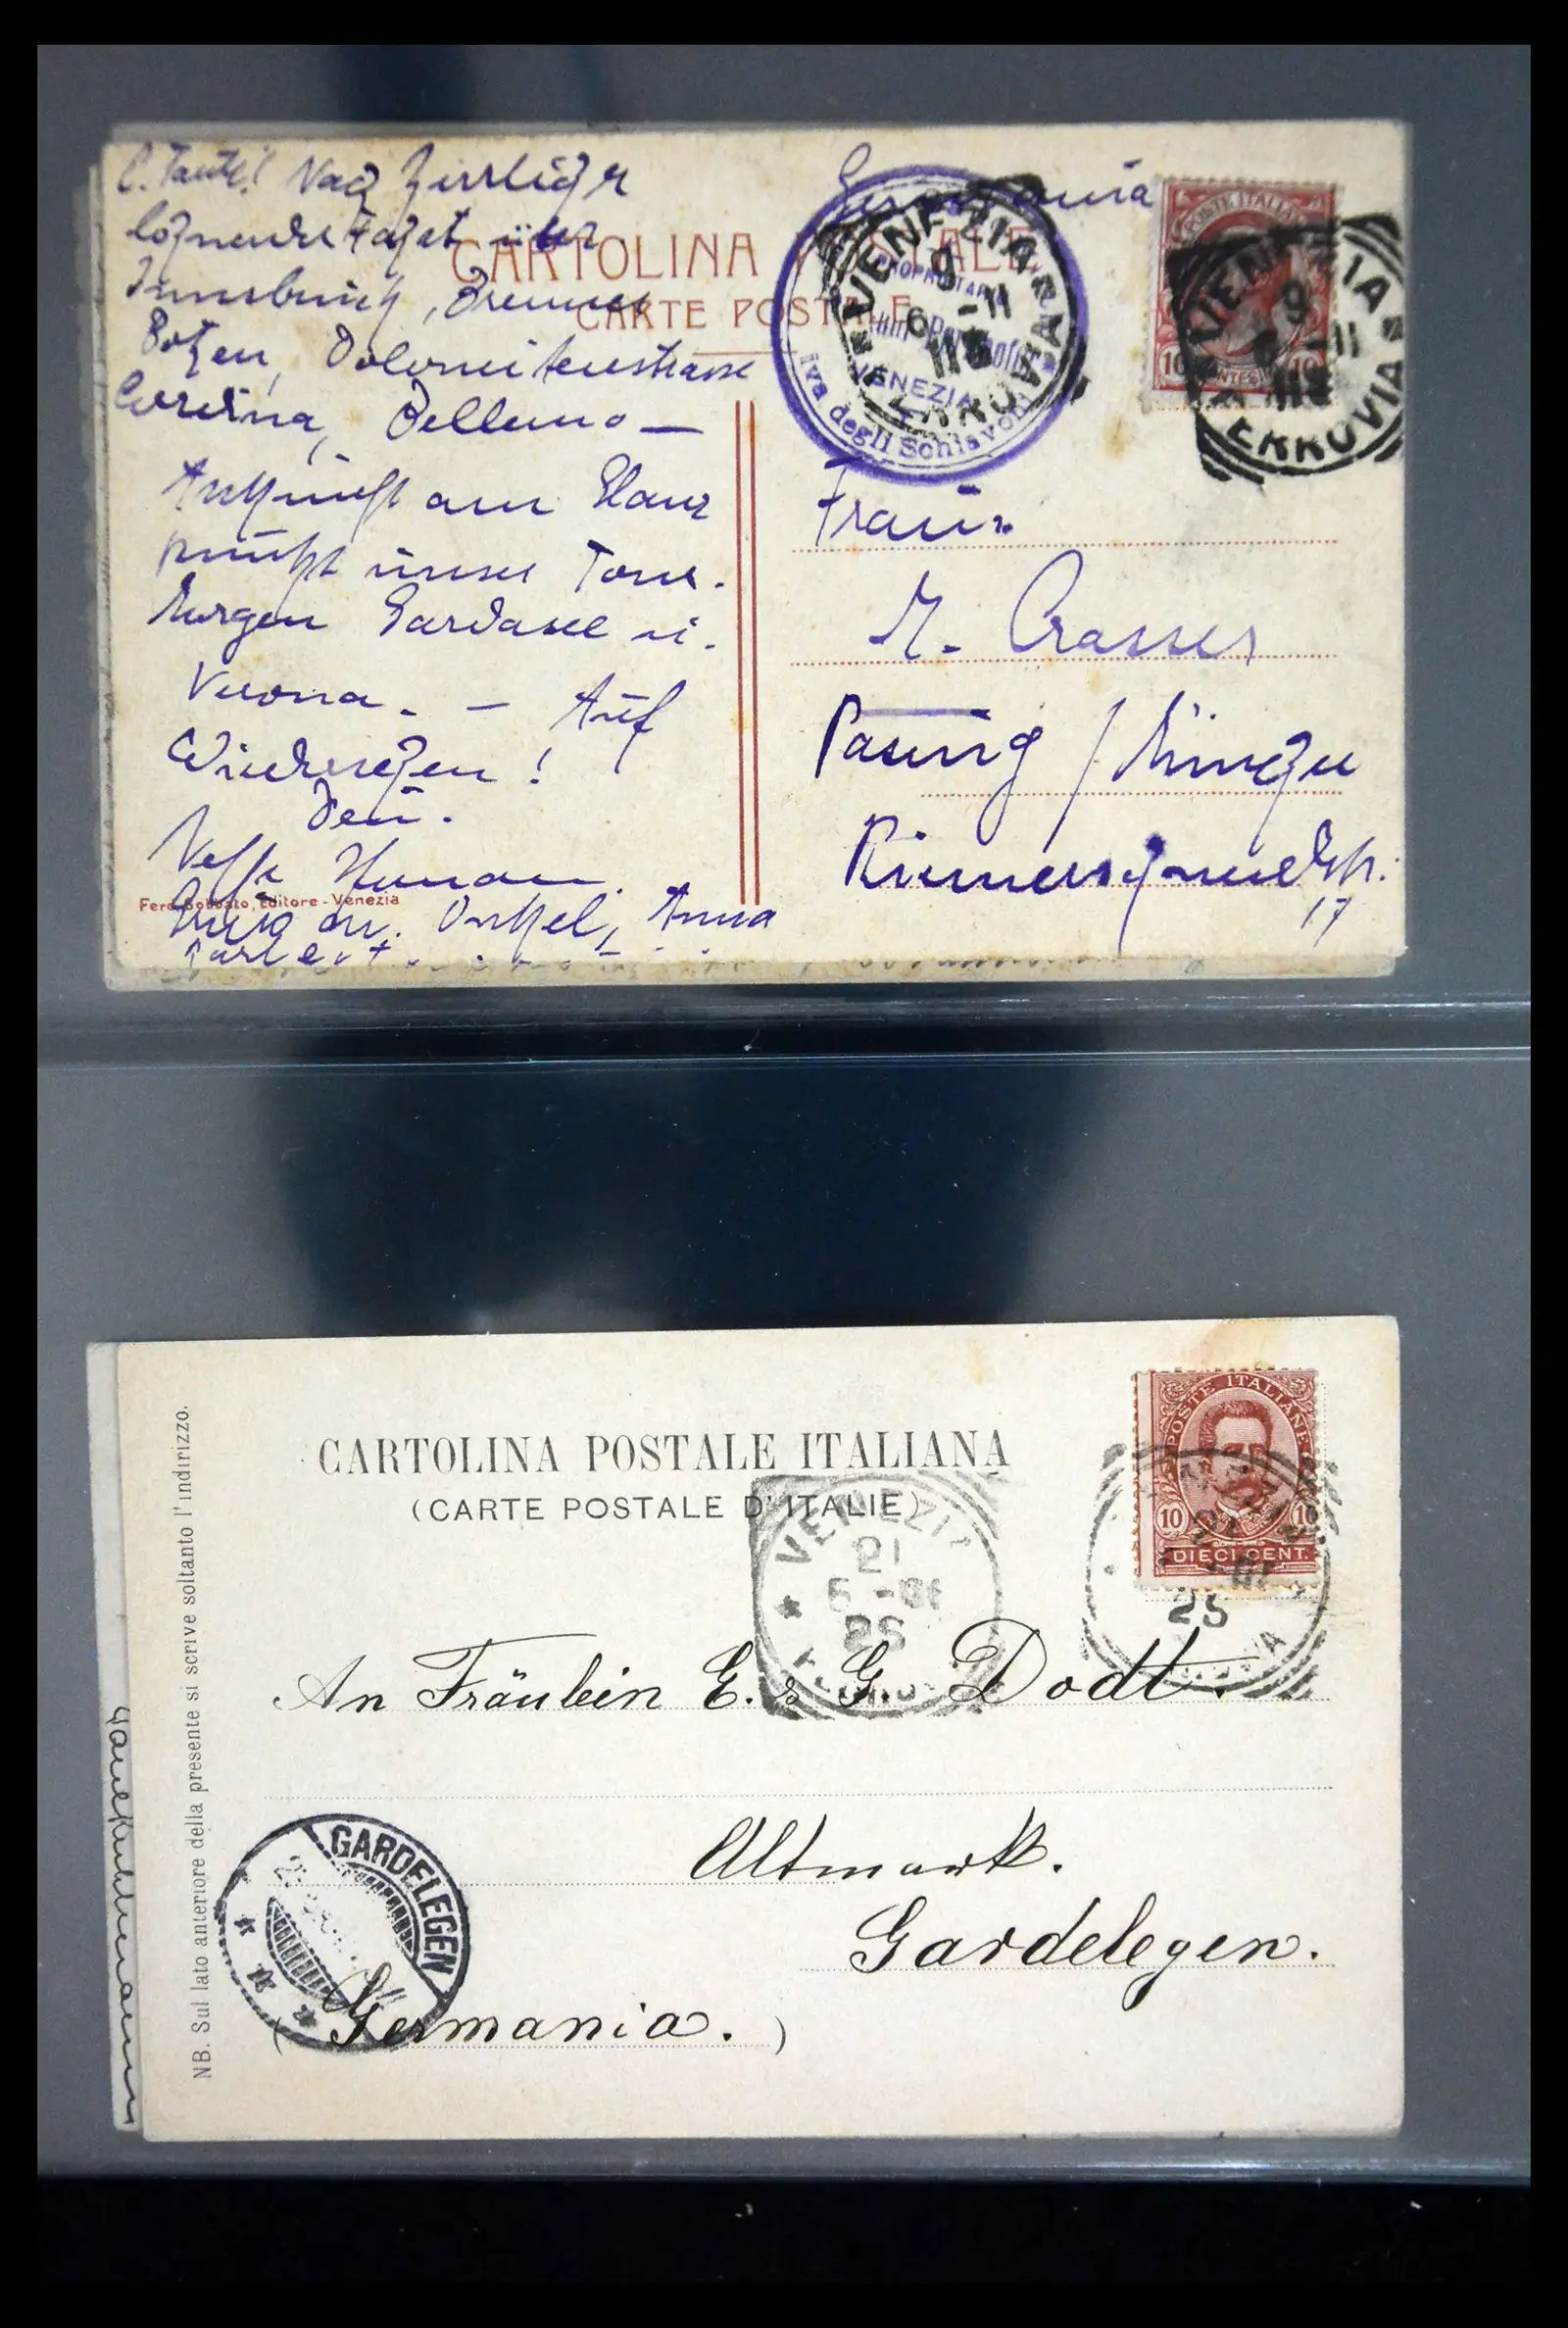 L. Tante! Nach herrlicher
lohnender Fahrt über
Innsbruck, Brenner
Bozen, Dolomitenstrasse
Cortina, Belluno —
Ankunft am Glanz
punkt unser Tour.
Morgen Gardasee u.
Verona. — Auf
Wiedersehen!
Dein.
Neffe Hermann.
Gruß an Onkel, Anna
CARTOLINA POSTALE
CARTE POSTALE
Ferd. Gobbato, Editore - Venezia
Germania
VENEZIA
9
6 - 11
11S
FERROVIA
PROPRIETARIO
VENEZIA
Riva degli Schiavoni
POSTE ITALIANE
10 CENTESIMI 10
VENEZIA
9
6 - 11
11S
FERROVIA
Frau
M. Crasser
Pasing / München
17
CARTOLINA POSTALE ITALIANA
(CARTE POSTALE D'ITALIE)
NB. Sul lato anteriore della presente si scrive soltanto l'indirizzo.
POSTE ITALIANE
10 10
DIECI CENT.
VENEZIA
21
25
VENEZIA
An Fräulein E. & G. Dodt.
Altmark.
Gardelegen.
(Germania.)
GARDELEGEN